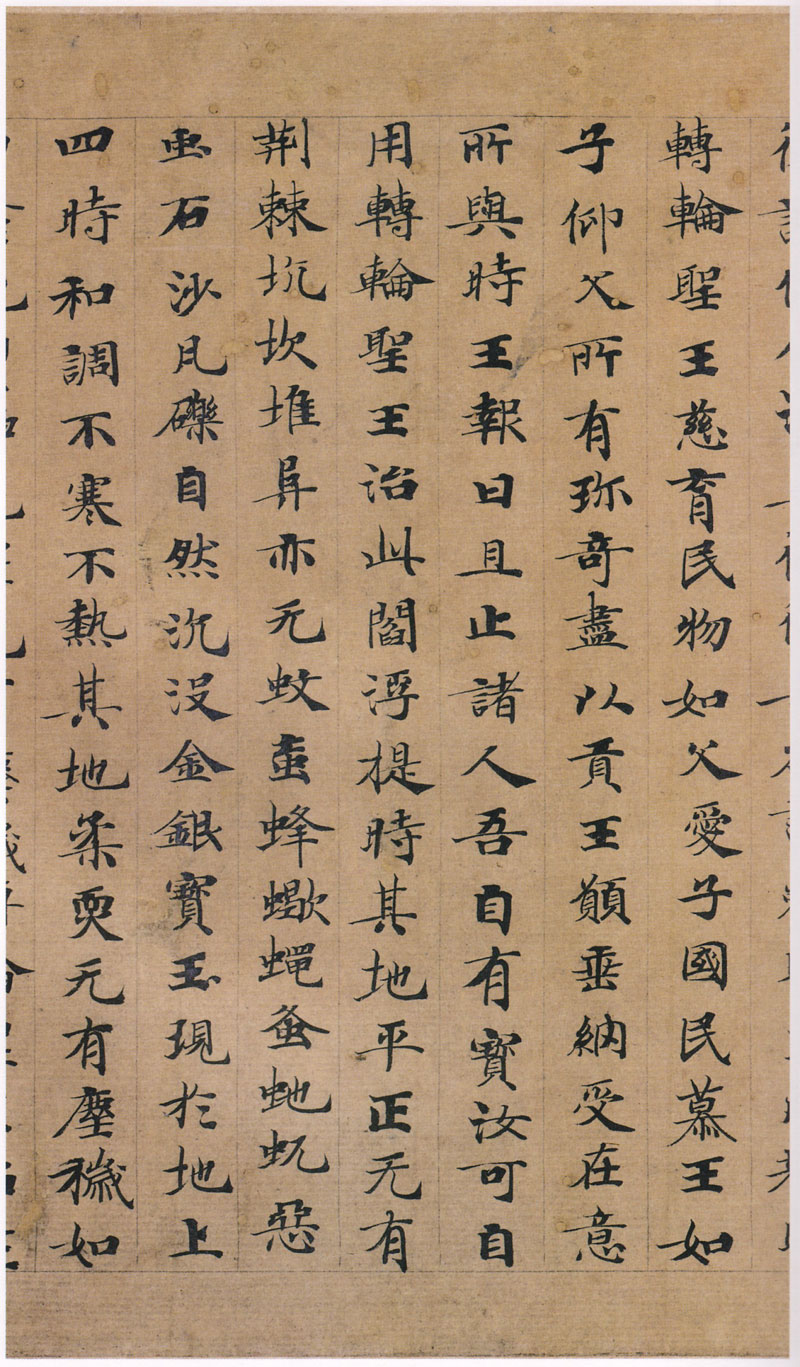 轉輪聖王慈育民物如父愛子國民慕王如
子仰父所有珎奇盡以貢王願垂納受在意
所與時王報曰且止諸人吾自有寶汝可自
用轉輪聖王治此閻浮提時其地平正无有
荆棘坑坎堆阜亦无蚊䖟蜂蠍蠅蚤虵蚖惡
虫石沙瓦礫自然沉没金銀寶玉現於地上
四時和調不寒不熱其地柔耎无有塵穢如